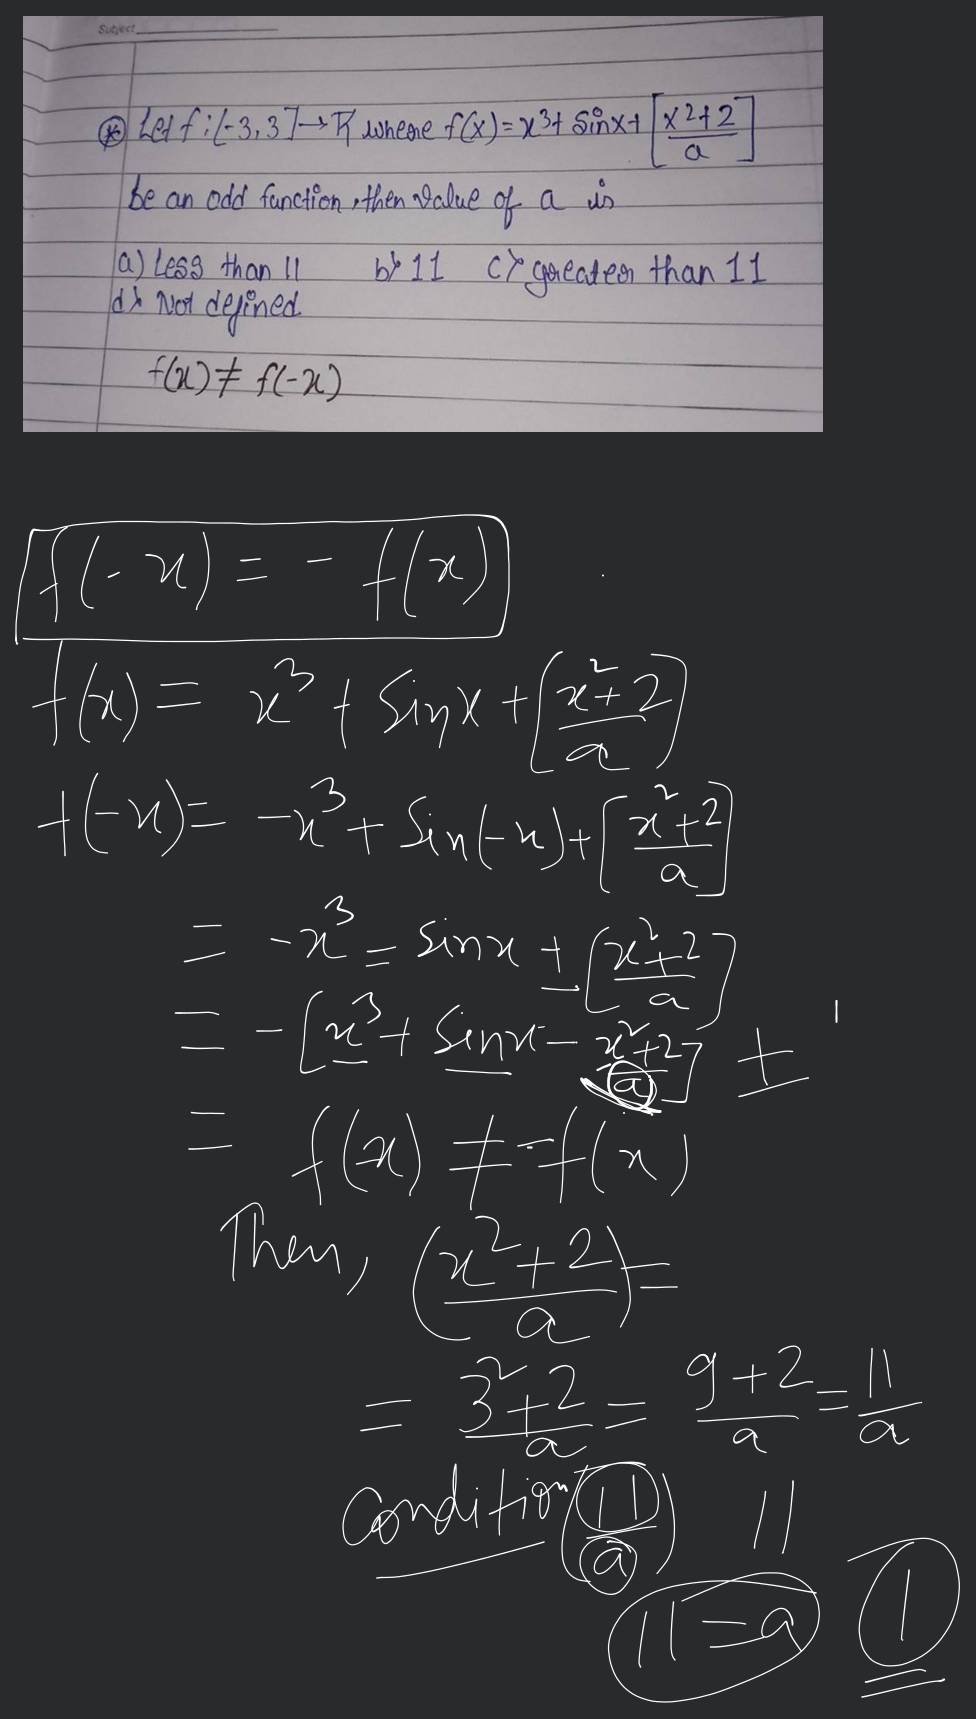 Subject
Let f:[-3,3]→R where f(x)=x³+sinx+[x²+2/a]
be an odd function, then value of a is
a) Less than 11 b) 11 c) greater than 11
d) Not defined
f(x)≠ f(-x)
f(-x) = - f(x)
f(x) = x³ + sinx + [x²+2/a]
f(-x) = -x³ + sin(-x) + [x²+2/a]
= -x³ = sinx ± [x²+2/a]
= -[x³ + sinx - x²+2/a] ± 1
= f(x) ≠ -f(x)
Then, (x²+2/a) =
= 3²+2/a = 9+2/a = 11/a
condition (11/a) 11
11=a 1